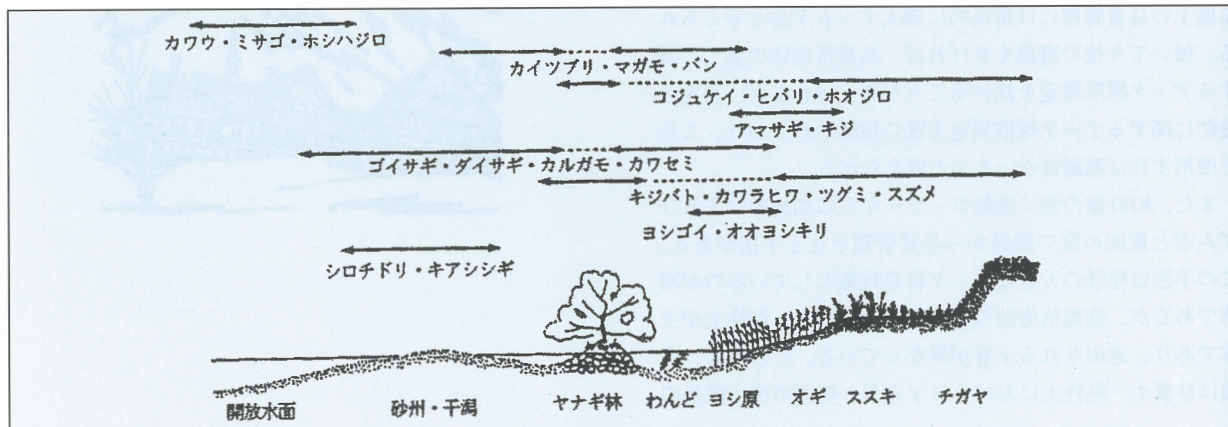 カワウ・ミサゴ・ホシハジロ
カイツブリ・マガモ・バン
コジュケイ・ヒバリ・ホオジロ
アマサギ・キジ
ゴイサギ・ダイサギ・カルガモ・カワセミ
キジバト・カワラヒワ・ツグミ・スズメ
ヨシゴイ・オオヨシキリ
シロチドリ・キアシシギ
開放水面 砂州・干潟 ヤナギ林 わんど ヨシ原 オギ ススキ チガヤ